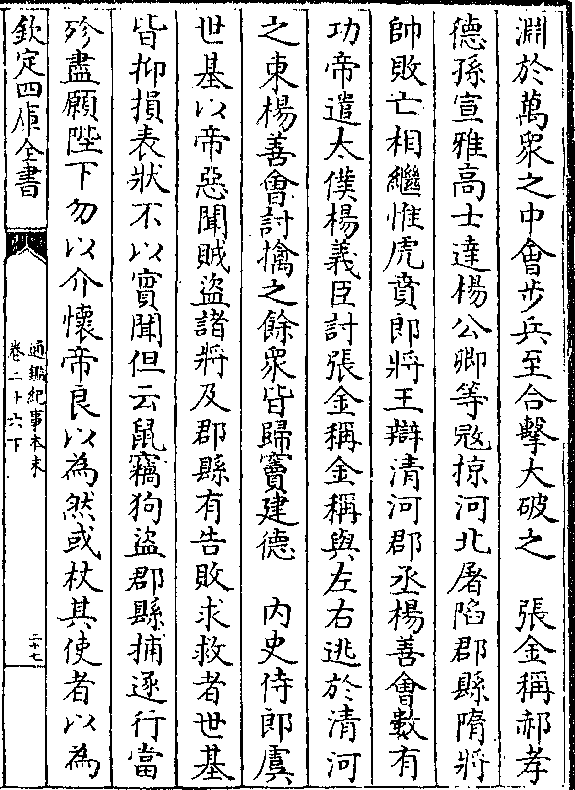 淵於萬衆之中會步兵至合擊大破之　張金稱郝孝
德孫宣雅高士達楊公卿等宼掠河北屠陷郡縣隋將
帥敗亡相繼惟虎賁郎將王辯清河郡丞楊善會數有
功帝遣太僕楊義臣討張金稱金稱與左右逃於清河
之東楊善會討擒之餘衆皆歸竇建德　内史侍郎虞
世基以帝惡聞賊盜諸將及郡縣有告敗求救者世基
皆抑損表狀不以實聞但云鼠竊狗盜郡縣捕逐行當
殄盡願陛下勿以介懷帝良以為然或杖其使者以為
欽定四庫全書
通鑑紀事本末
卷二十六下
二十七